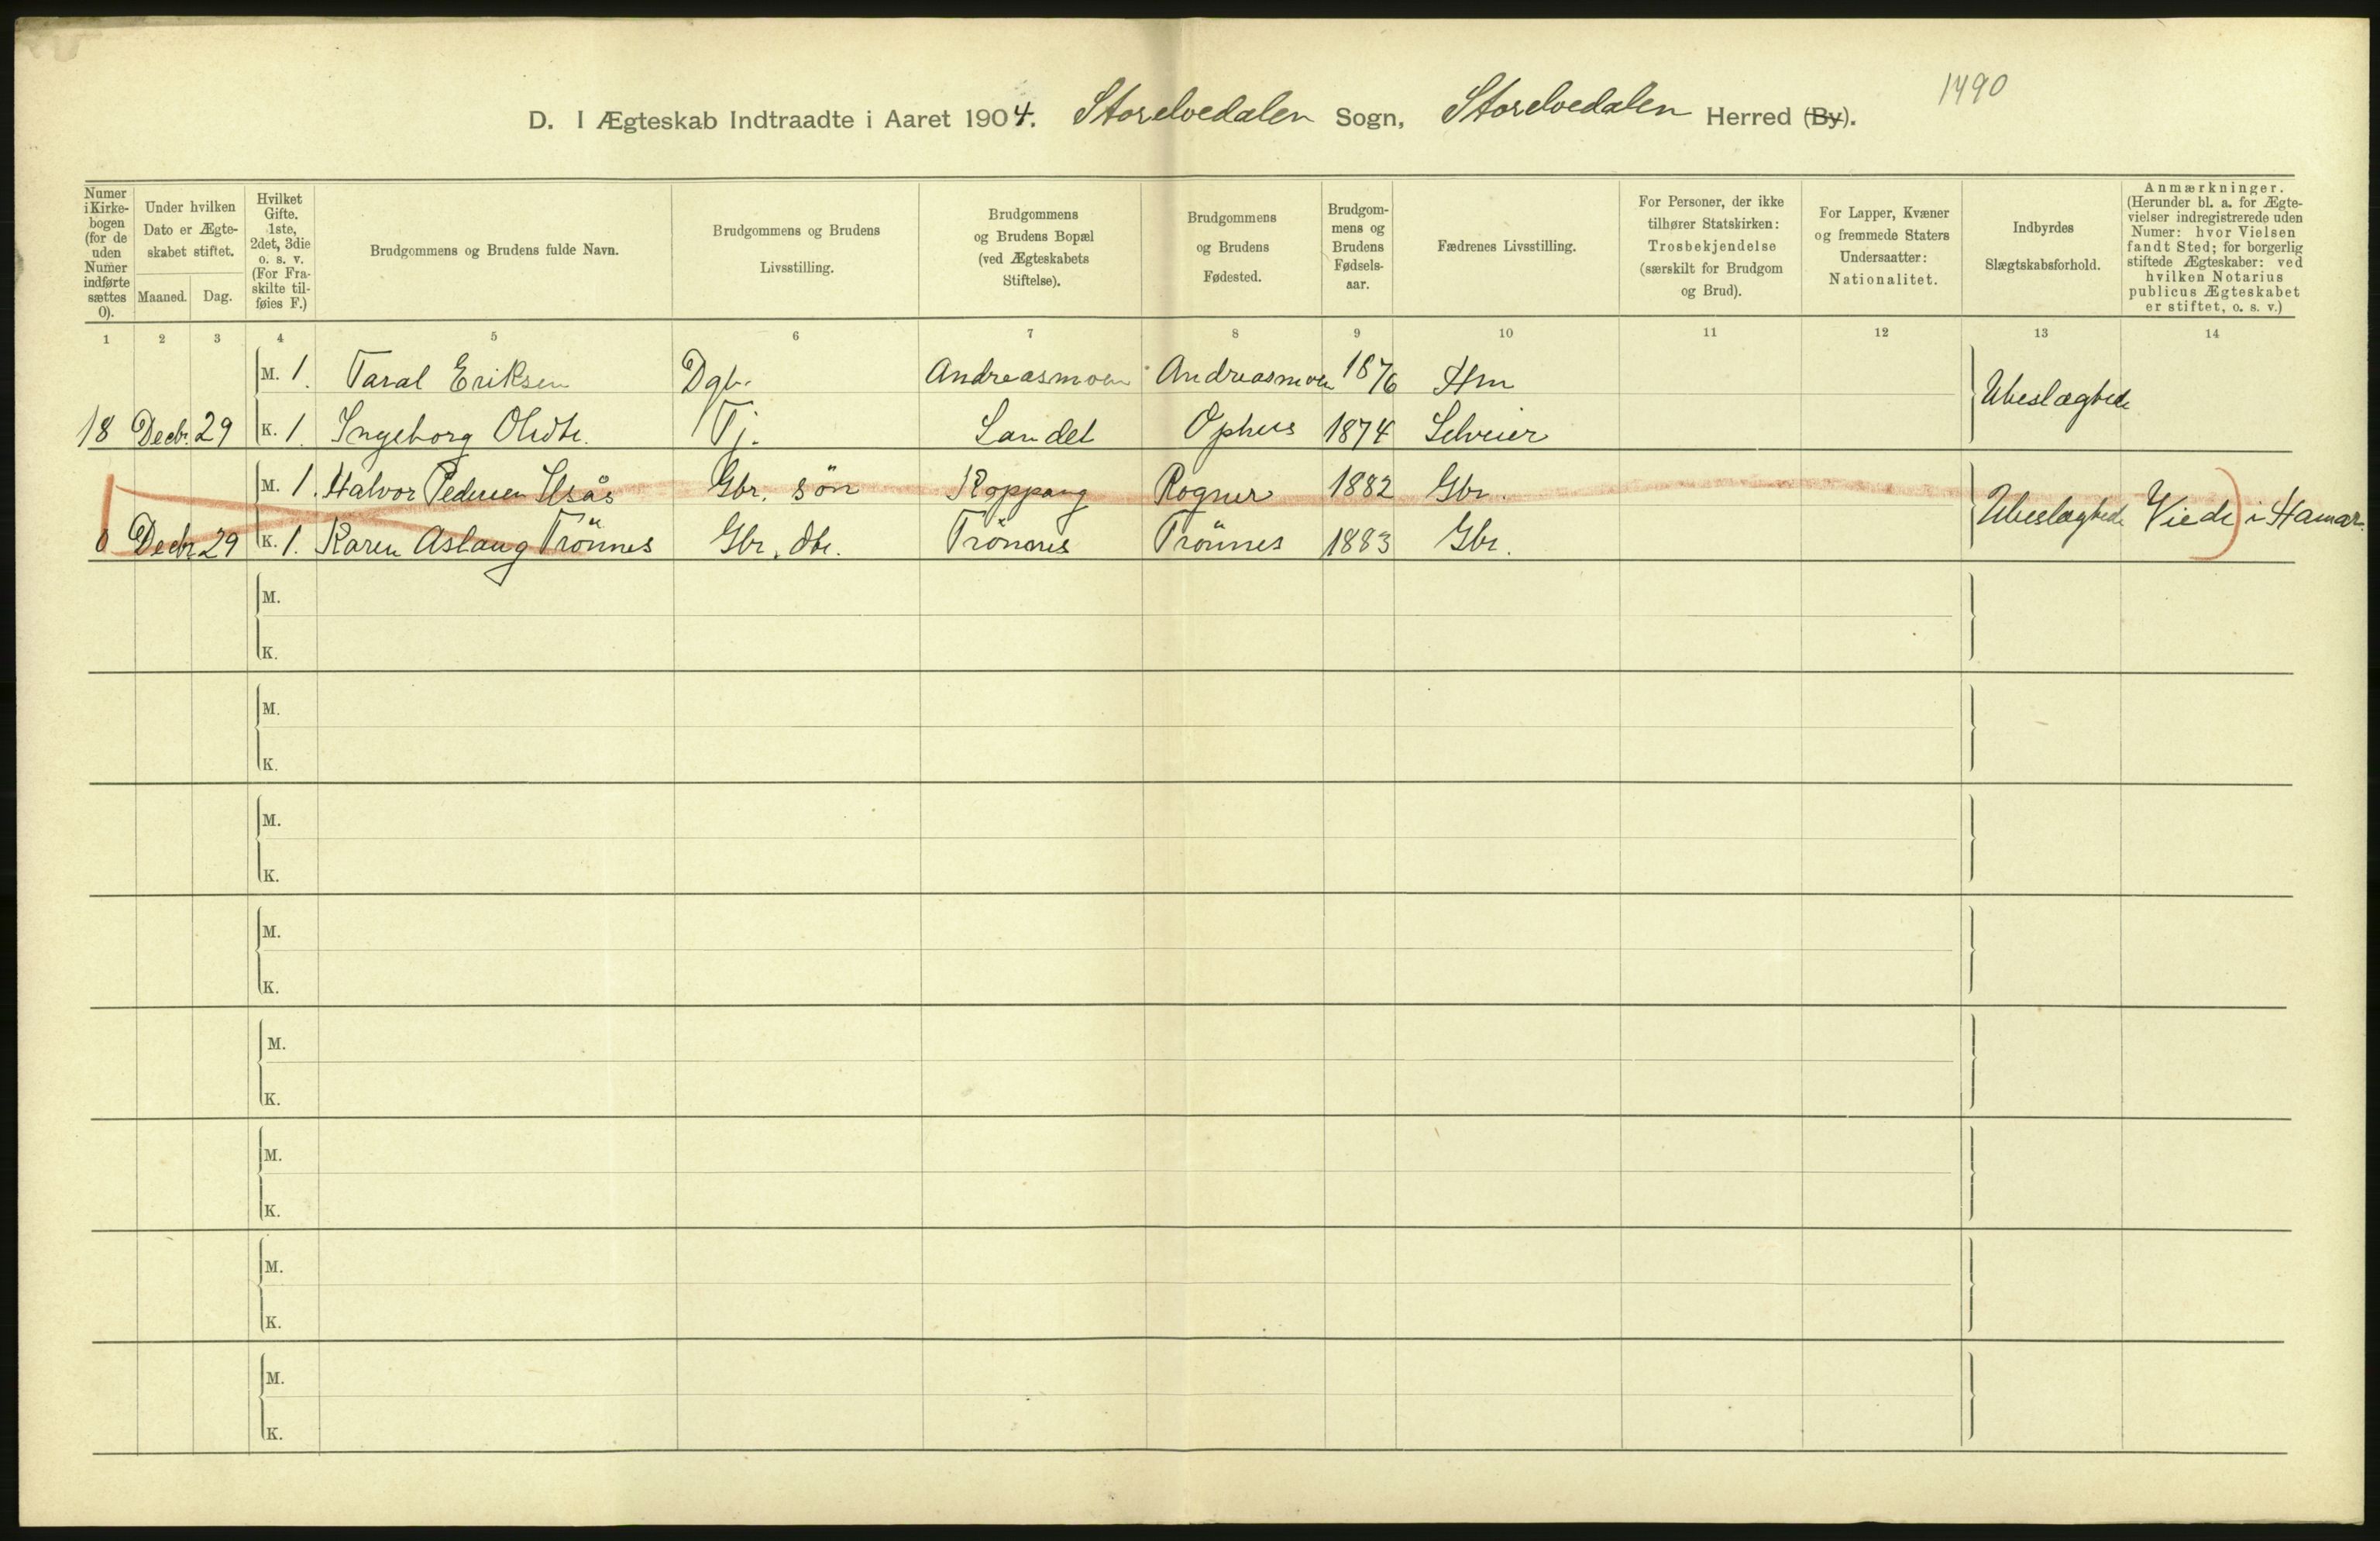 1490
D. I Ægteskab Indtraadte i Aaret 1904. Storelvedalen Sogn, Storelvedalen Herred (By).
Numer i Kirke-bogen (for de uden Numer indførte sættes 0).
Under hvilken Dato er Ægte-skabet stiftet.
Maaned. Dag.
Hvilket Gifte. 1ste, 2det, 3die o. s. v. (For Fra-skilte til-føies F.)
Brudgommens og Brudens fulde Navn.
Brudgommens og Brudens Livsstilling.
Brudgommens og Brudens Bopæl (ved Ægteskabets Stiftelse).
Brudgommens og Brudens Fødested.
Brudgom-mens og Brudens Fødsels-aar.
Fædrenes Livsstilling.
For Personer, der ikke tilhører Statskirken: Trosbekjendelse (særskilt for Brudgom og Brud).
For Lapper, Kvæner og fremmede Staters Undersaatter: Nationalitet.
Indbyrdes Slægtskabsforhold.
Anmærkninger. (Herunder bl. a. for Ægte-vielser indregistrerede uden Numer: hvor Vielsen fandt Sted; for borgerlig stiftede Ægteskaber: ved hvilken Notarius publicus Ægteskabet er stiftet, o. s. v.)
1 2 3 4 5 6 7 8 9 10 11 12 13 14
M. 1. Taral Eriksen Dgb. Andreasmoen Andreasmoen 1876 Hm Ubeslægtede
18 Decbr. 29 K. 1. Ingeborg Olsdtr. Tj. Landet Ophus 1874 Selveier
M. 1. Halvor Pedersen Ilsås Gbr. sön Koppang Rogner 1882 Gbr. Ubeslægtede Viede i Hamar.
0 Decbr 29 K. 1. Karen Aslaug Trönnes Gbr. dtr. Trönnes Trönnes 1883 Gbr.
M.
K.
M.
K.
M.
K.
M.
K.
M.
K.
M.
K.
M.
K.
M.
K.